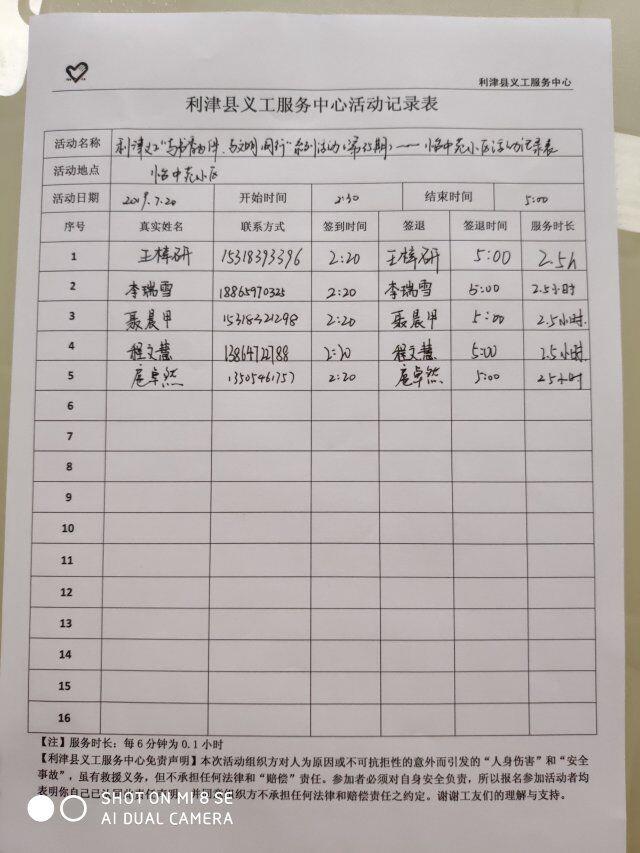 利津县义工服务中心
利津县义工服务中心活动记录表
活动名称 利津义工"与书香为伴、与文明同行"系列活动(第35期)——怡中苑小区活动记录表
活动地点 怡中苑小区
活动日期 2019.7.20 开始时间 2:30 结束时间 5:00
序号 真实姓名 联系方式 签到时间 签退 签退时间 服务时长
1 王梓研 15318393396 2:20 王梓研 5:00 2.5h
2 李瑞雪 18865970325 2:20 李瑞雪 5:00 2.5小时
3 聂晨甲 15318321298 2:20 聂晨甲 5:00 2.5小时.
4 程文慧 13864722788 2:20 程文慧 5:00 2.5小时.
5 扈卓然 13505461757 2:20 扈卓然 5:00 2.5小时
6
7
8
9
10
11
12
13
14
15
16
【注】服务时长：每6分钟为0.1小时
【利津县义工服务中心免责声明】本次活动组织方对人为原因或不可抗拒性的意外而引发的"人身伤害"和"安全
事故"，虽有救援义务，但不承担任何法律和"赔偿"责任。参加者必须对自身安全负责，所以报名参加活动者均
表明你自己已 组织方不承担任何法律和赔偿责任之约定。谢谢工友们的理解与支持。
SHOT ON MI 8 SE
AI DUAL CAMERA